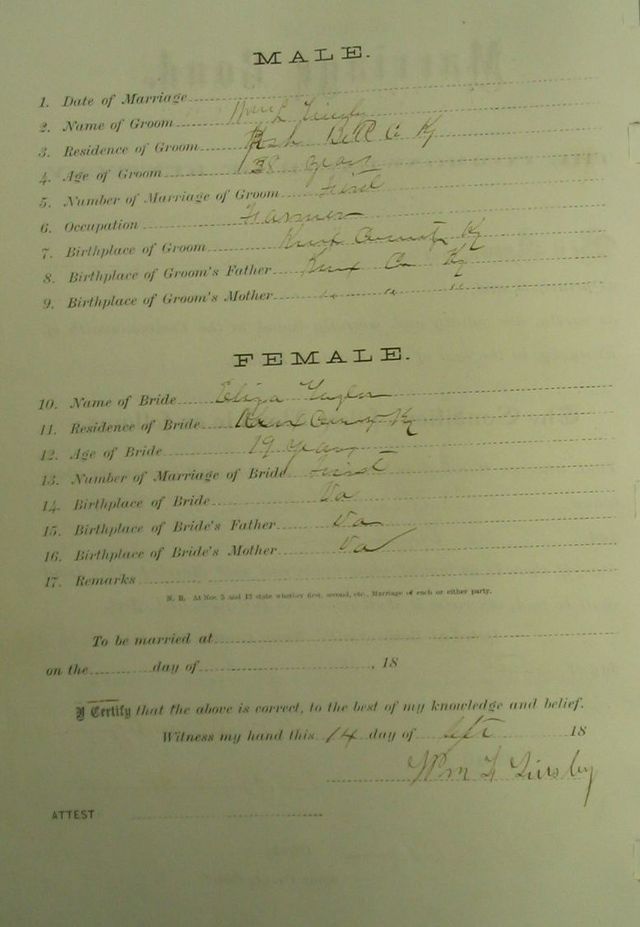 MALE.
1. Date of Marriage
2. Name of Groom
3. Residence of Groom Bell Co Ky
4. Age of Groom 38 years
5. Number of Marriage of Groom First
6. Occupation Farmer
7. Birthplace of Groom Knox County Ky
8. Birthplace of Groom's Father Knox Co Ky
9. Birthplace of Groom's Mother " " "
FEMALE.
10. Name of Bride Eliza Taylor
11. Residence of Bride County Ky
12. Age of Bride 19 years
13. Number of Marriage of Bride First
14. Birthplace of Bride Va
15. Birthplace of Bride's Father Va
16. Birthplace of Bride's Mother Va
17. Remarks
N. B. At Nos. 5 and 13 state whether first, second, etc., Marriage of each or either party.
To be married at
on the day of , 18
I Certify that the above is correct, to the best of my knowledge and belief.
Witness my hand this 14 day of 18
Wm
ATTEST